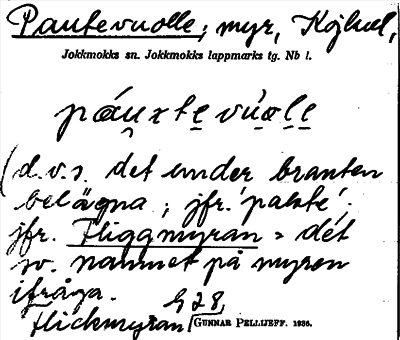 Pautevuolle; myr, Kojkul,
Jokkmokks sn. Jokkmokks lappmarks tg. Nb l.
páu̯xtẹ vú̯o̯l̯ẹ
(d.v.s. det under branten
belägna; jfr. ’pakte’.
jfr. Fliggmyran = det
sv. namnet på myren
ifråga. G 28,
flickmyran GUNNAR PELLIJEFF. 1936.